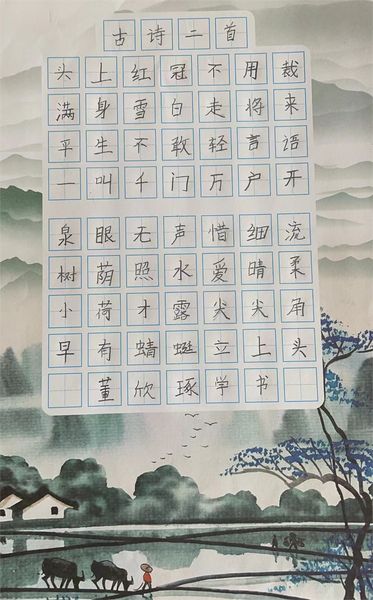 古诗二首
头上红冠不用裁
满身雪白走将来
平生不敢轻言语
一叫千门万户开
泉眼无声惜细流
树荫照水爱晴柔
小荷才露尖尖角
早有蜻蜓立上头
董欣琢学书